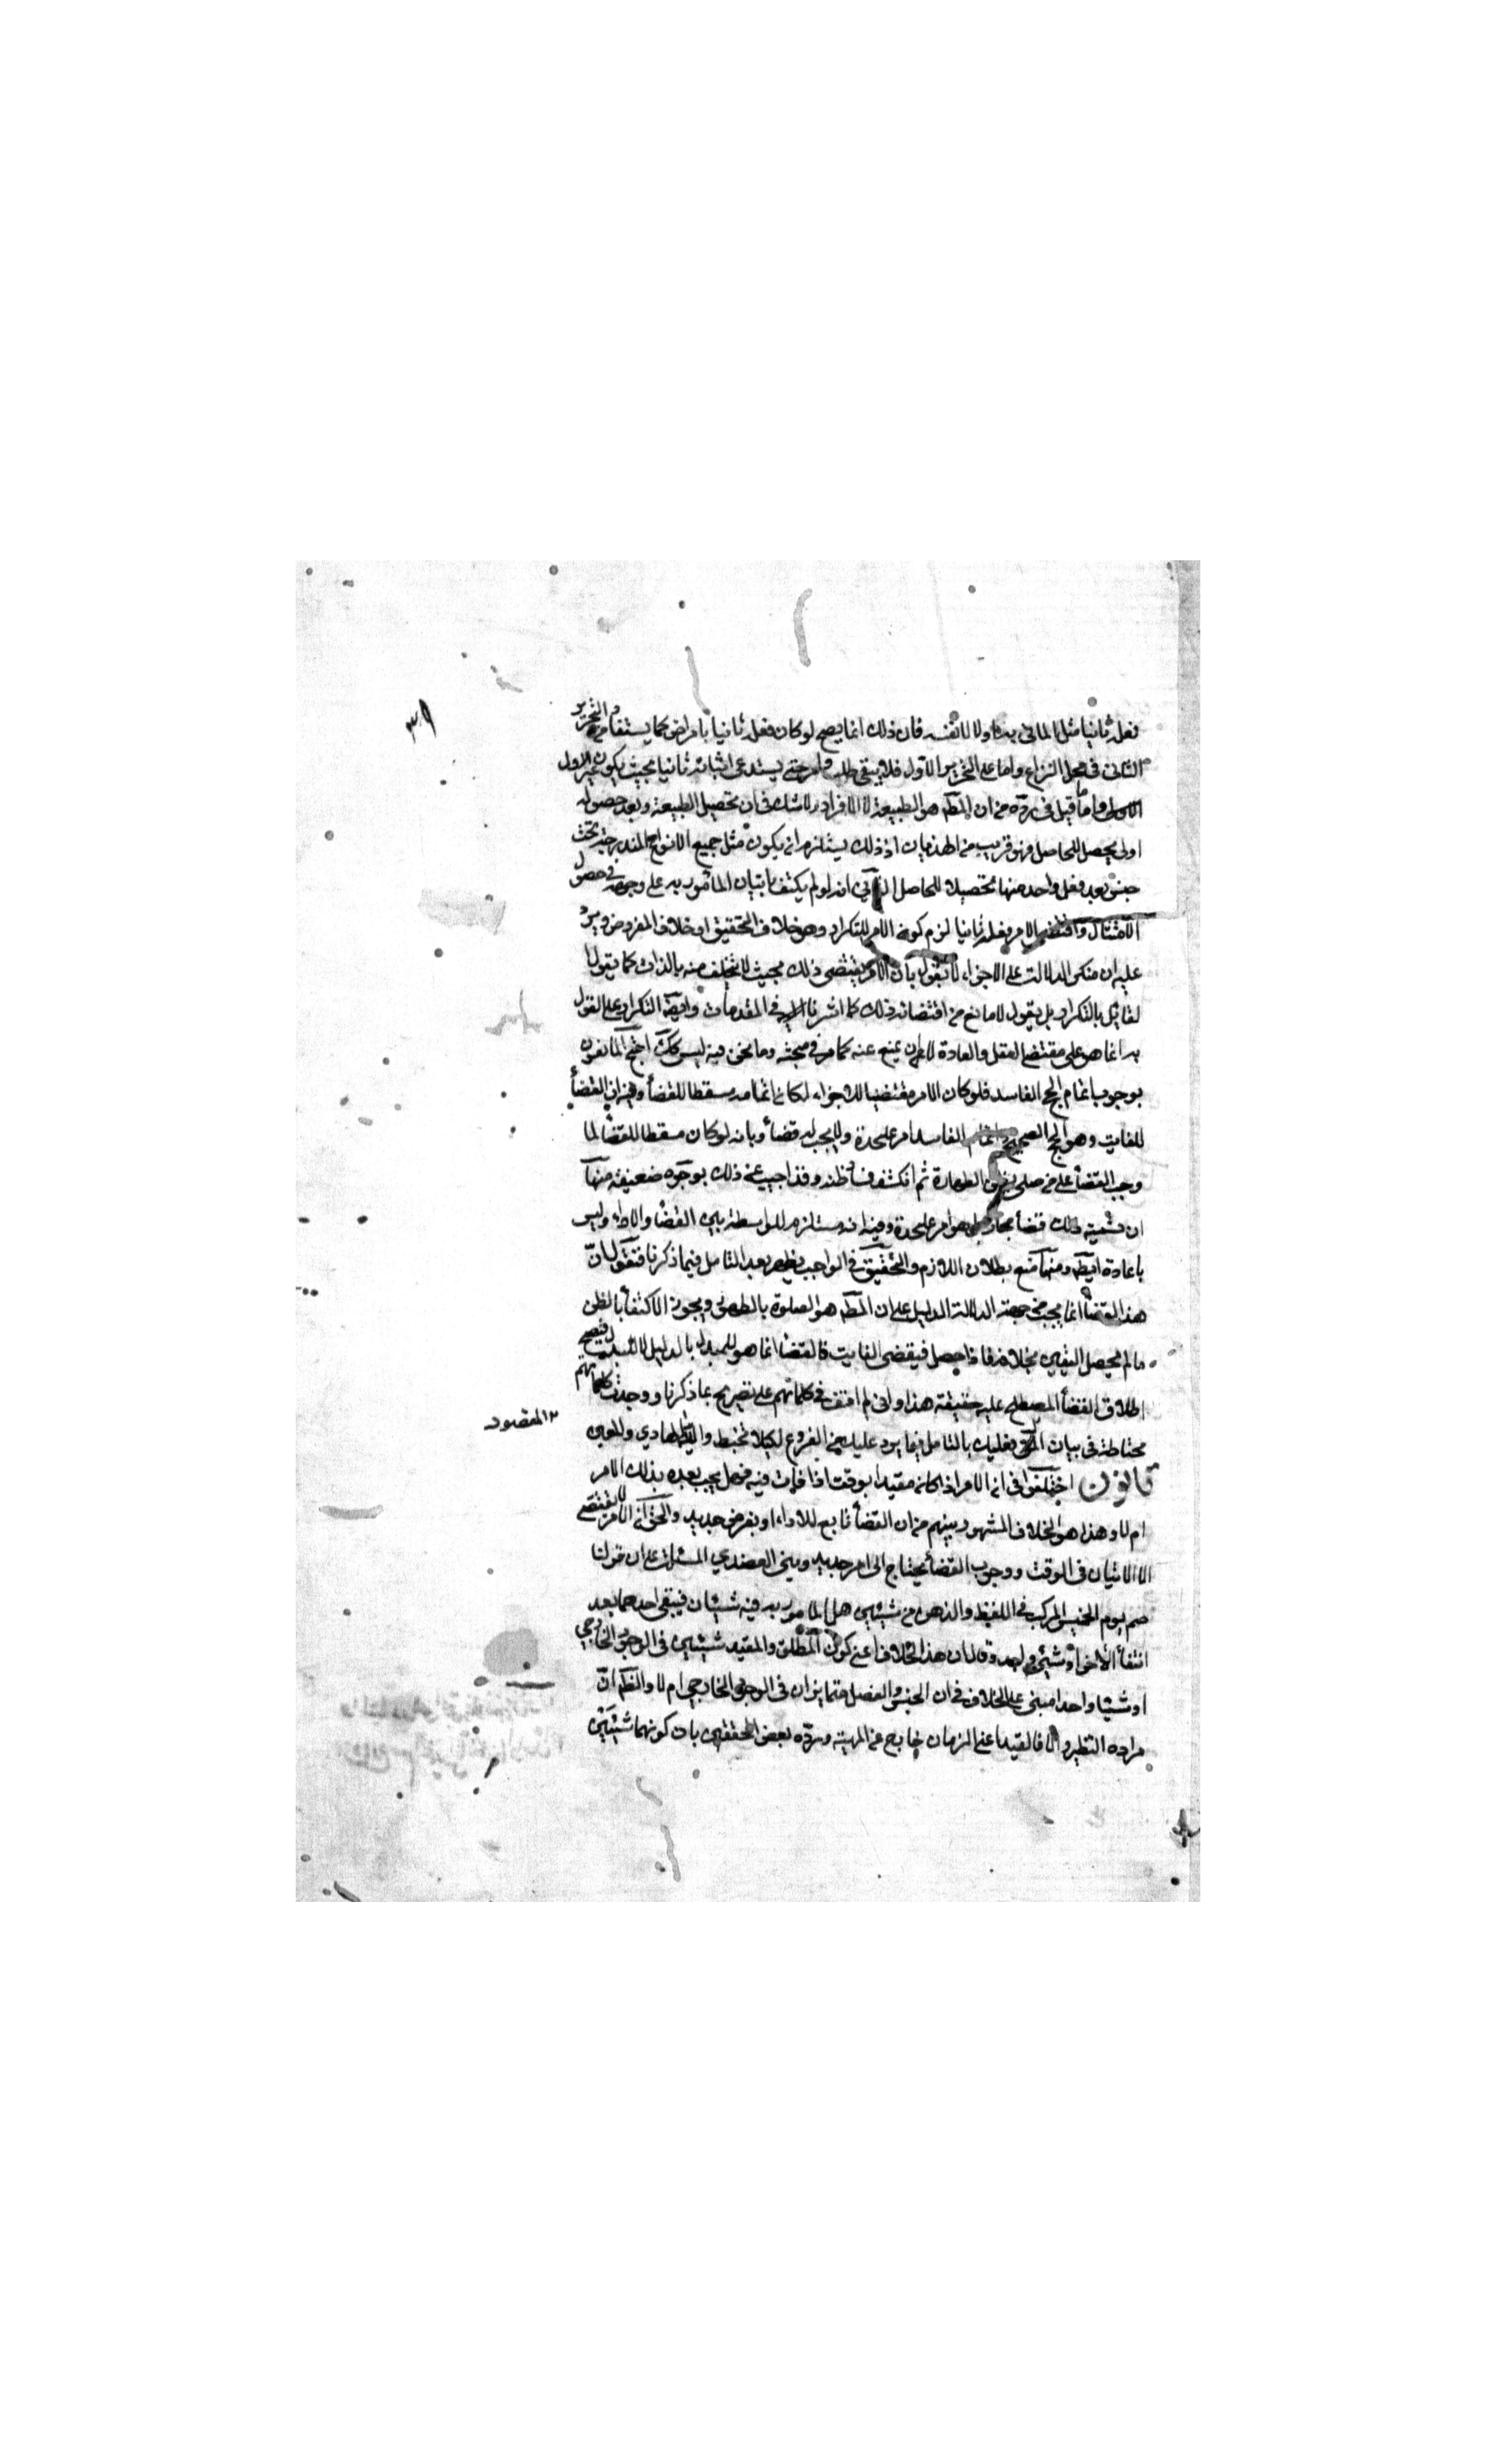 ٣٩
فعله ثانيا مثل الماتي به اولا لا نفسه فان ذلك انما يصح لو كان فعله ثانيا بامر اخر كما يستفاد من التحرير
الثاني في محل النزاع واما على التحرير الاول فلا يبقى طلب وامر حتى يستدعى اثباته ثانيا بحيث يكون غير الاول
واما ما قيل في رده من ان المط هو الطبيعة لا الافراد ولا شك في ان تحصيل الطبيعة وبعد حصوله
اولى تحصيل للحاصل فهو قريب من الهذيان اذ ذلك يستلزم ان يكون مثل جميع الانواع المندرجة تحت
جنس بعد فعل واحد منها تحصيلا للحاصل الثاني انه لو لم يكتف باتيان المأمور به على وجهه في حصول
الامتثال واقتضى الامر فعله ثانيا لزم كون الامر للتكرار وهو خلاف التحقيق او خلاف المفروض ويرد
عليه ان منكر الدلالة على الاجزاء لا يقول بان الامر يقتضى ذلك بحيث لا يتخلف منه بالذات كما يقول
لقائل بالتكرار بل يقول لا مانع من اقتضائه ذلك كما اشرنا في المقدمات وايضا التكرار على القول
به انما هو على مقتضى العقل والعادة لا ان يمنع عنه كما مر في مبحثه وما نحن فيه ليس كك احتج المانعون
بوجوب اتمام الحج الفاسد فلو كان الامر مقتضيا للاجزاء لكان اتمامه مسقطا للقضأ وفيه ان القضأ
للفايت وهو الحج الصحيح واتمام الفاسد امر عليحدة ولا يجب له قضأ وبانه لو كان مسقطا للقضأ لما
وجب القضأ على من صلى بظن الطهارة ثم انكشف فساد ظنه وقد اجيب عن ذلك بوجوه ضعيفة منها
ان تسمية ذلك قضأ مجاز بل هو امر عليحدة وفيه انه مستلزم للواسطة بين القضأ والاداء وليس
باعادة ايضا ومنها منع بطلان اللازم والتحقيق في الجواب يظهر بعد التامل فيما ذكرنا فنقول ان
هذا القضأ انما يجب من جهة الدلالة الدليل على ان المط هو الصلوة بالطهور ويجوز الاكتفأ بالظن
ما لم يحصل اليقين بخلافه فاذا حصل فيقضى الفايت فالقضأ انما هو للمبدل بالدليل لا للبدل فيصح
اطلاق القضأ المصطلح عليه حقيقة هذا وانى لم اقف في كلماتهم على تصريح بما ذكرنا ووجدت كلماتهم
مختلطة في بيان فعليك بالتامل فيما يرد عليك من الفروع لكيلا تختبط والله الهادي والمعين
٢ المقصود
قانون اختلفوا في ان الامر اذا كان مقيدا بوقت اذا فات فيه فهل يجب بعده بذلك الامر
ام لا وهذا هو الخلاف المشهور بينهم من ان القضأ تابع للاداء او بفرض جديد والحق ان الامر لا يقتضى
الا الاتيان في الوقت ووجوب القضأ يحتاج الى امر جديد وبنى العضدي المسئلة على ان قولنا
صم يوم الخميس المركب في اللفظ والذهن من شيئين هل المامور به فيه شيئان فيبقى احدهما بعد
انتفأ الاخر او شيئ واحد وقال ان هذا الخلاف اعنى كون المطلق والمقيد شيئين في الوجود الخارجي
او شيئا واحدا مبنى على الخلاف في ان الجنس والفصل متمايزان في الوجود الخارجي ام لا والظ ان
مراده التنظير والا فالقيد اعنى الزمان خارج عن المهية ورده بعض المحققين بان كونهما شيئين